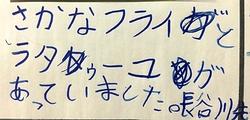 さかなフライと
ラタトゥーユが
あっていました。長谷川先